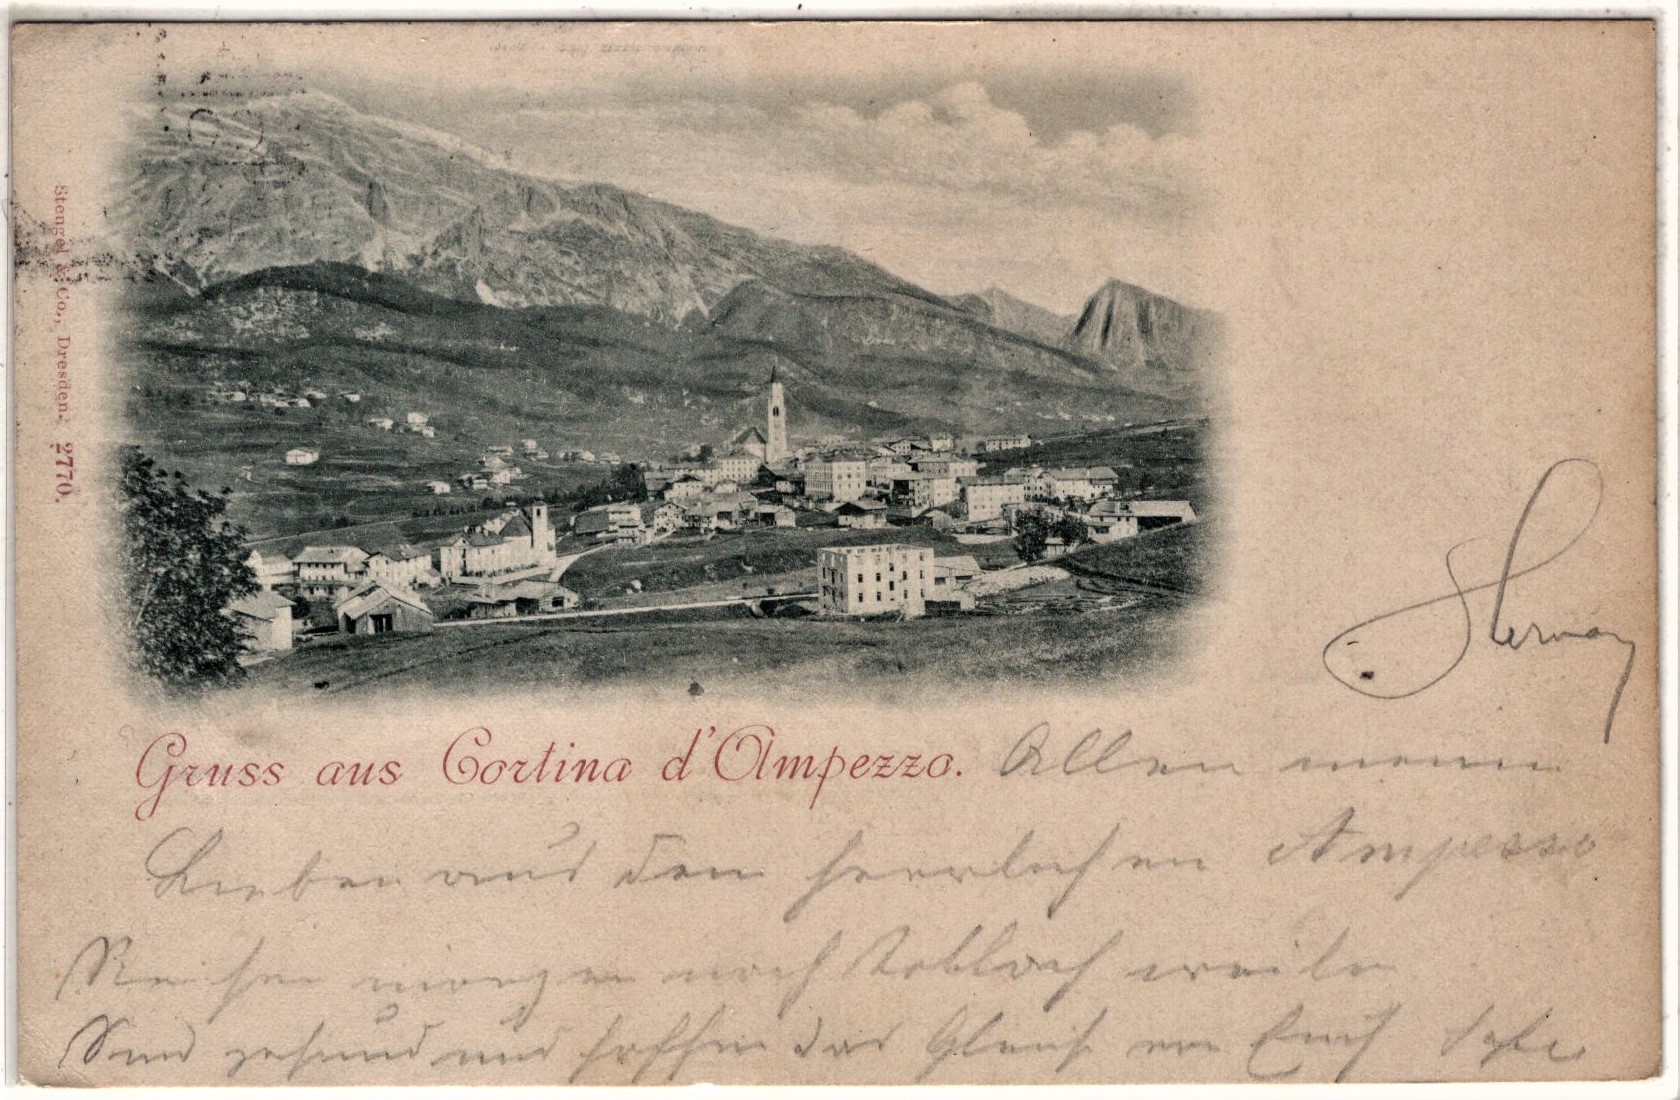 Stengel & Co., Dresden. 2770.
Gruss aus Cortina d'Ampezzo.
Allen meinen
Lieben aus dem herrlichen Ampezzo
Reisen morgen nach Toblach weiter
Sind gesund und hoffen das Gleiche von Euch